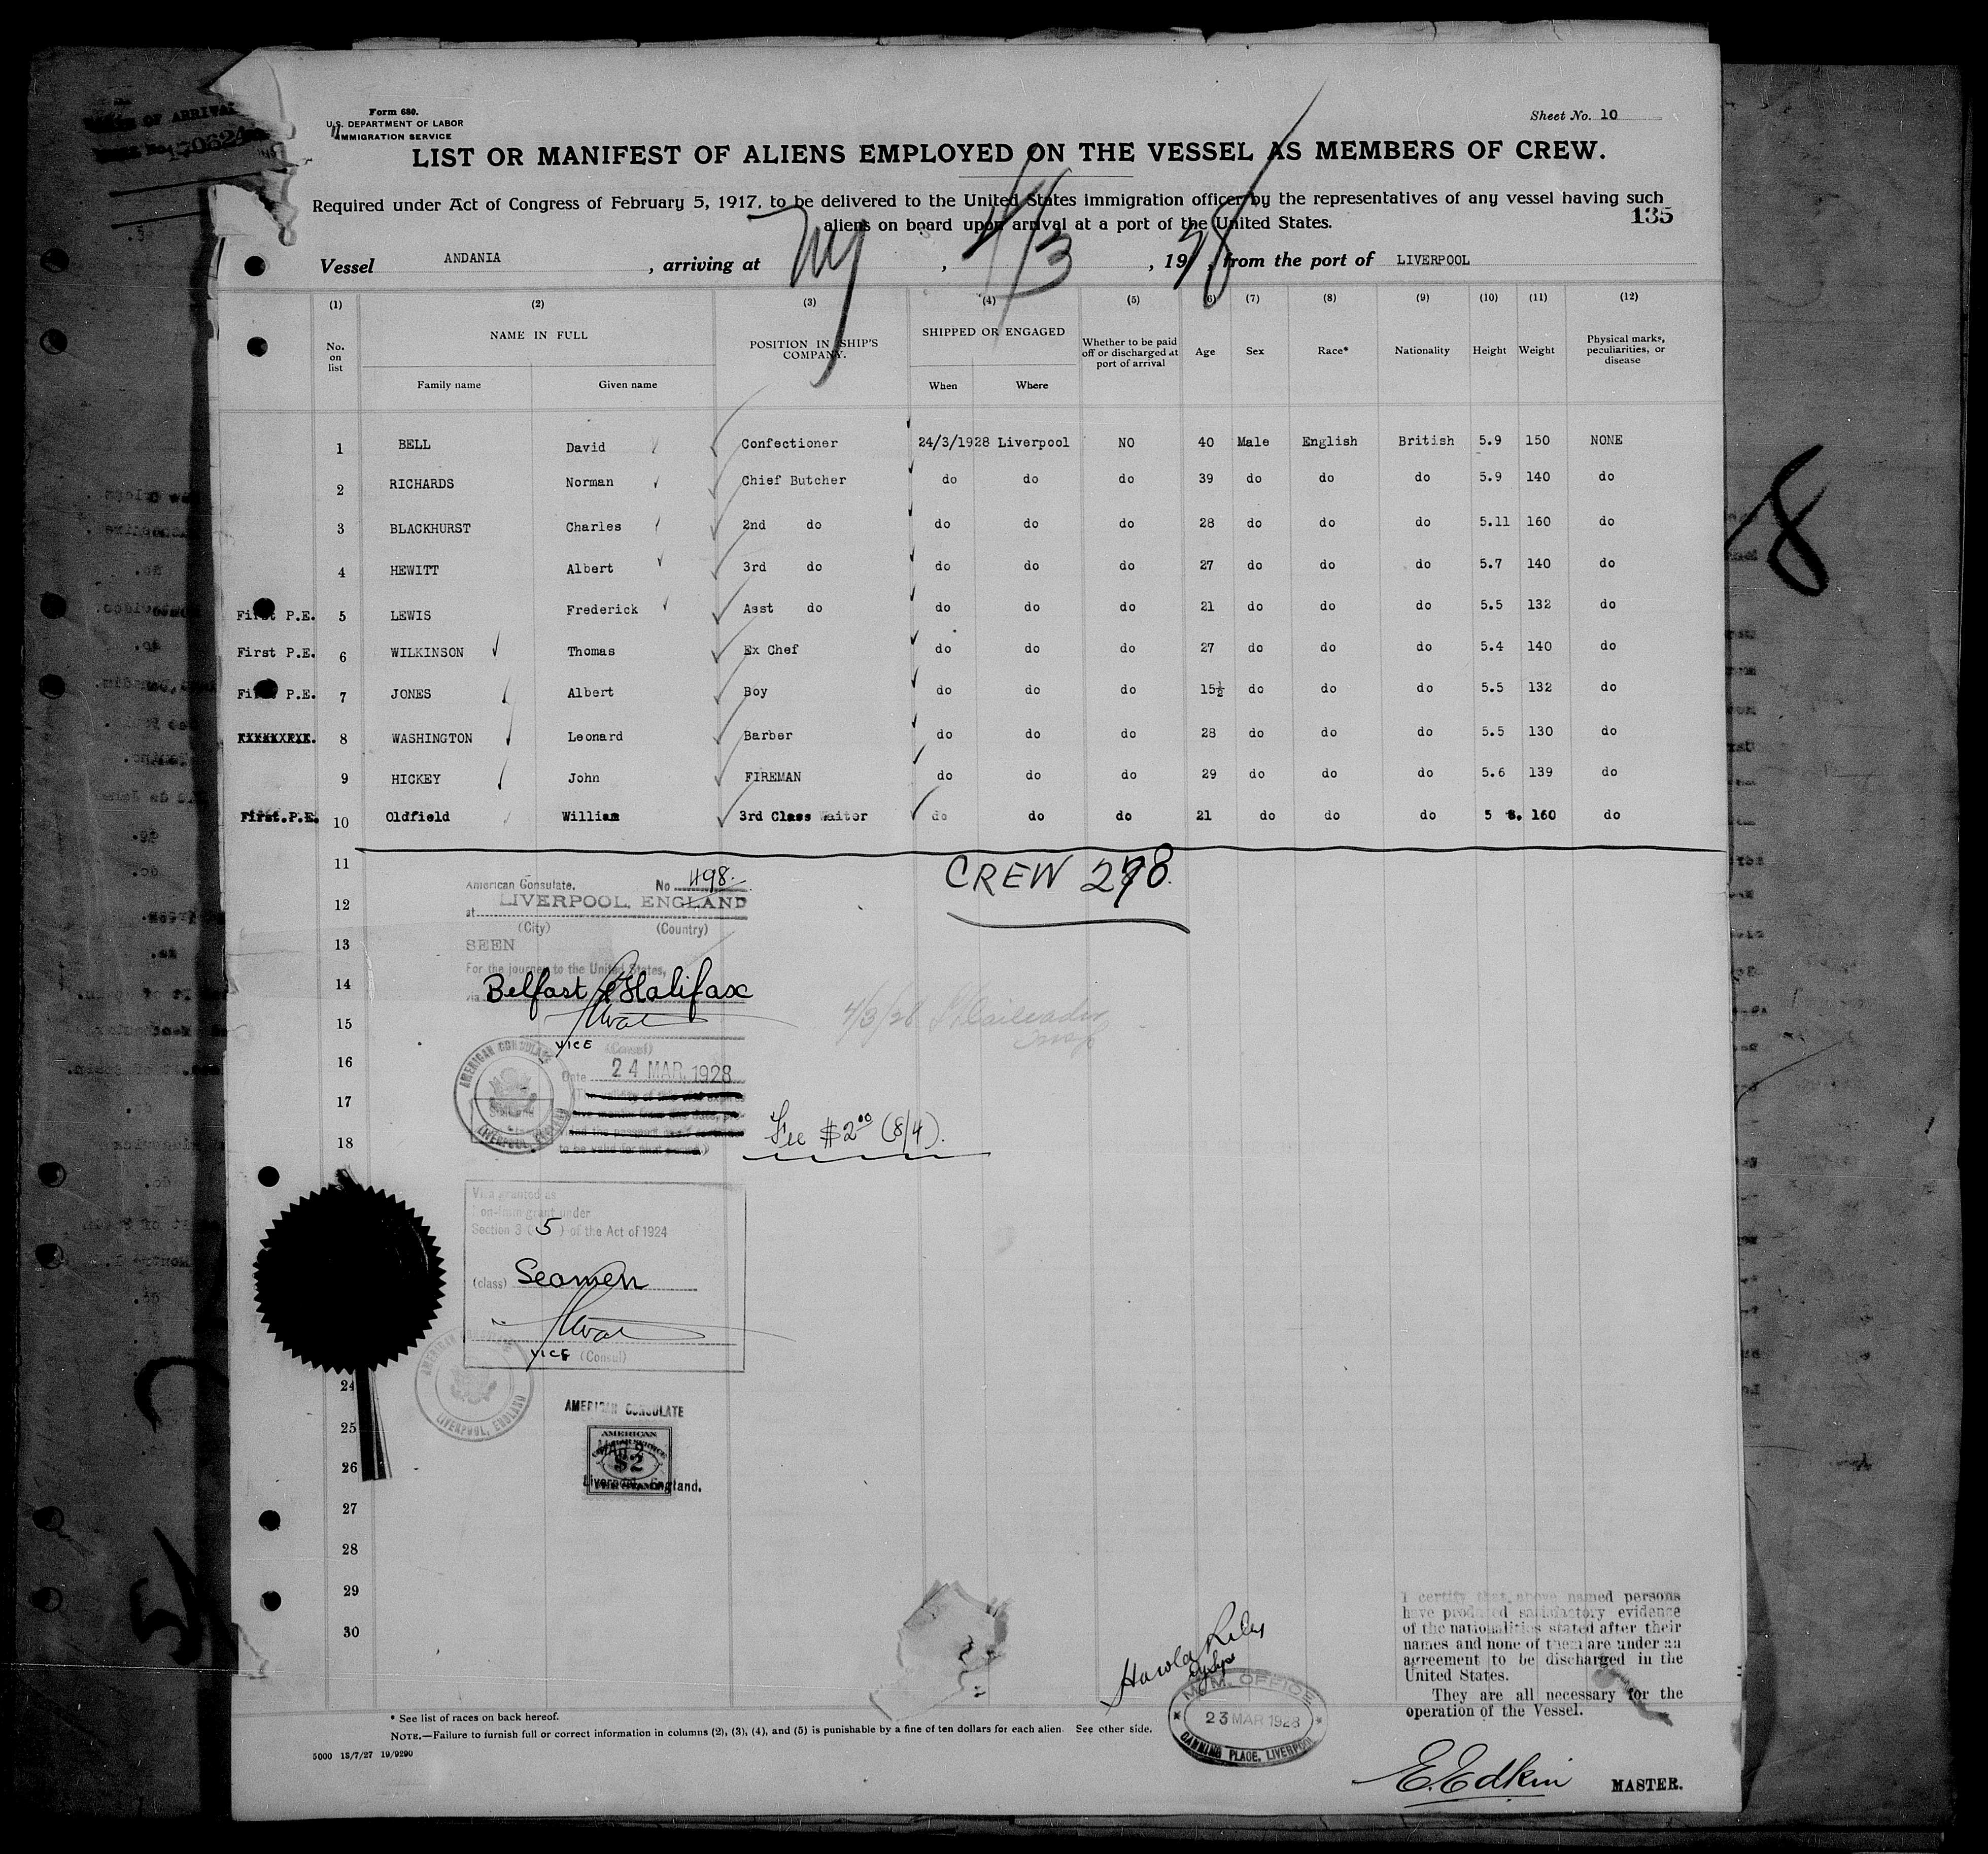 Form 680.
U.S. DEPARTMENT OF LABOR
IMMIGRATION SERVICE
Sheet No. 10
LIST OR MANIFEST OF ALIENS EMPLOYED ON THE VESSEL AS MEMBERS OF CREW.
Required under Act of Congress of February 5, 1917, to be delivered to the United States immigration officer by the representatives of any vessel having such
aliens on board upon arrival at a port of the United States.
135
Vessel ANDANIA, arriving at NY, 4/3, 1928, from the port of LIVERPOOL
(1) (2) (3) (4) (5) (6) (7) (8) (9) (10) (11) (12)
No. on list NAME IN FULL POSITION IN SHIP'S COMPANY. SHIPPED OR ENGAGED Whether to be paid off or discharged at port of arrival Age Sex Race* Nationality Height Weight Physical marks, peculiarities, or disease
Family name Given name When Where
1 BELL David Confectioner 24/3/1928 Liverpool NO 40 Male English British 5.9 150 NONE
2 RICHARDS Norman Chief Butcher do do do 39 do do do 5.9 140 do
3 BLACKHURST Charles 2nd do do do do 28 do do do 5.11 160 do
4 HEWITT Albert 3rd do do do do 27 do do do 5.7 140 do
First P.E. 5 LEWIS Frederick Asst do do do do 21 do do do 5.5 132 do
First P.E. 6 WILKINSON Thomas Ex Chef do do do 27 do do do 5.4 140 do
First P.E. 7 JONES Albert Boy do do do 15½ do do do 5.5 132 do
8 WASHINGTON Leonard Barber do do do 28 do do do 5.5 130 do
9 HICKEY John FIREMAN do do do 29 do do do 5.6 139 do
First.P.E. 10 Oldfield William 3rd Class Waiter do do do 21 do do do 5 8. 160 do
11
CREW 278.
American Consulate. No 498.
12
at LIVERPOOL, ENGLAND
(City) (Country)
13
SEEN
For the journey to the United States,
14
via Belfast & Halifax
15
VICE (Consul)
16
AMERICAN CONSULATE LIVERPOOL, ENGLAND
Date 24 MAR. 1928
17
18
Fee $2.00 (8/4).
Visa granted as
non-immigrant under
Section 3 (5) of the Act of 1924
(class) Seamen
VICE (Consul)
AMERICAN CONSULATE LIVERPOOL, ENGLAND
24
AMERICAN CONSULATE
25
AMERICAN
$2
26
Liverpool, England.
27
28
29
30
I certify that above named persons
have produced satisfactory evidence
of the nationalities stated after their
names and none of them are under an
agreement to be discharged in the
United States.
They are all necessary for the
operation of the Vessel.
Harold Riley
M.M. OFFICE
23 MAR 1928
CANNING PLACE, LIVERPOOL
* See list of races on back hereof.
NOTE.—Failure to furnish full or correct information in columns (2), (3), (4), and (5) is punishable by a fine of ten dollars for each alien. See other side.
5000 13/7/27 19/9290
E. Edkin MASTER.